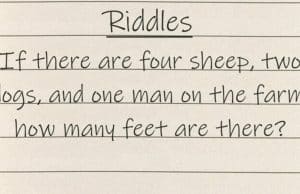 Riddles
If there are four sheep, two
dogs, and one man on the farm
how many feet are there?